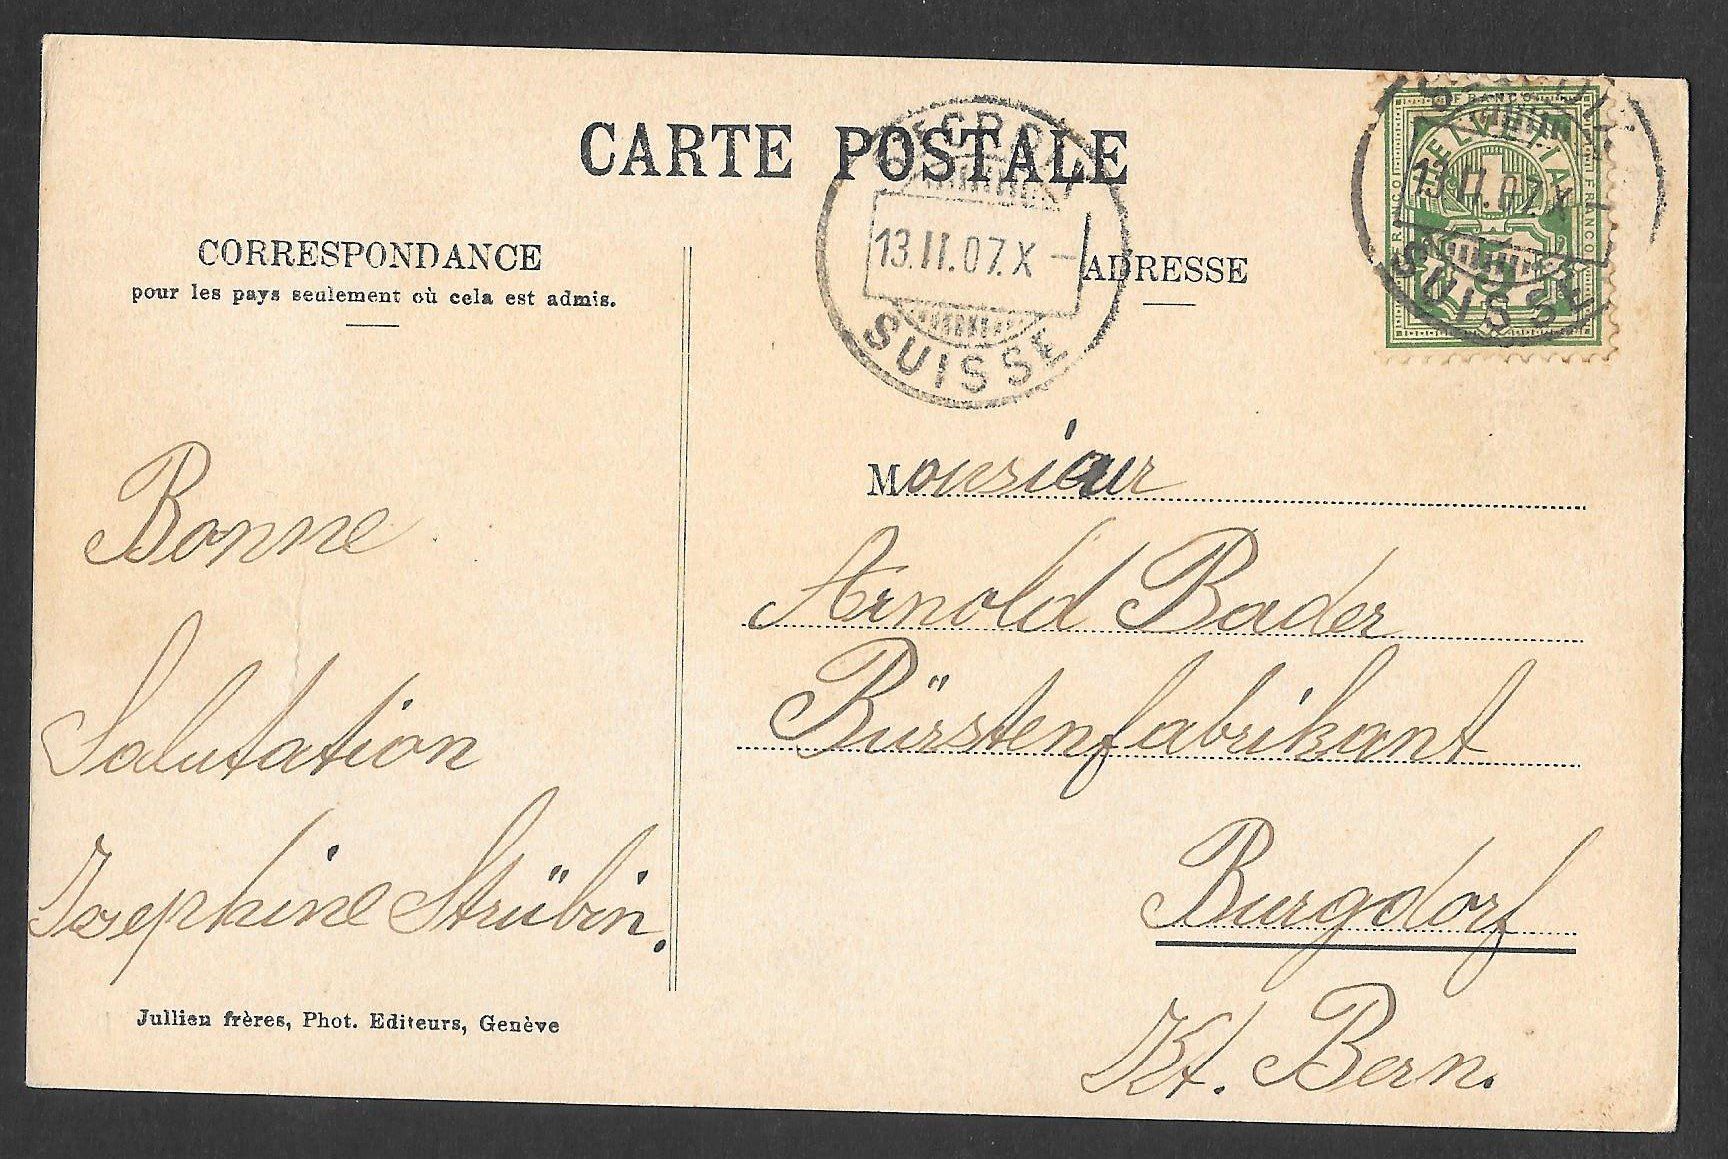 CARTE POSTALE
CORRESPONDANCE
pour les pays seulement où cela est admis.
ADRESSE
13.II.07.X–
SUISSE
FRANCO
HELVETIA
FRANCO
FRANCO
13.II.07.X–
SUISSE
Bonne
Salutation
Josephine Strübin.
Monsieur
Arnold Bader
Bürstenfabrikant
Burgdorf
Kt. Bern.
Jullien frères, Phot. Editeurs, Genève